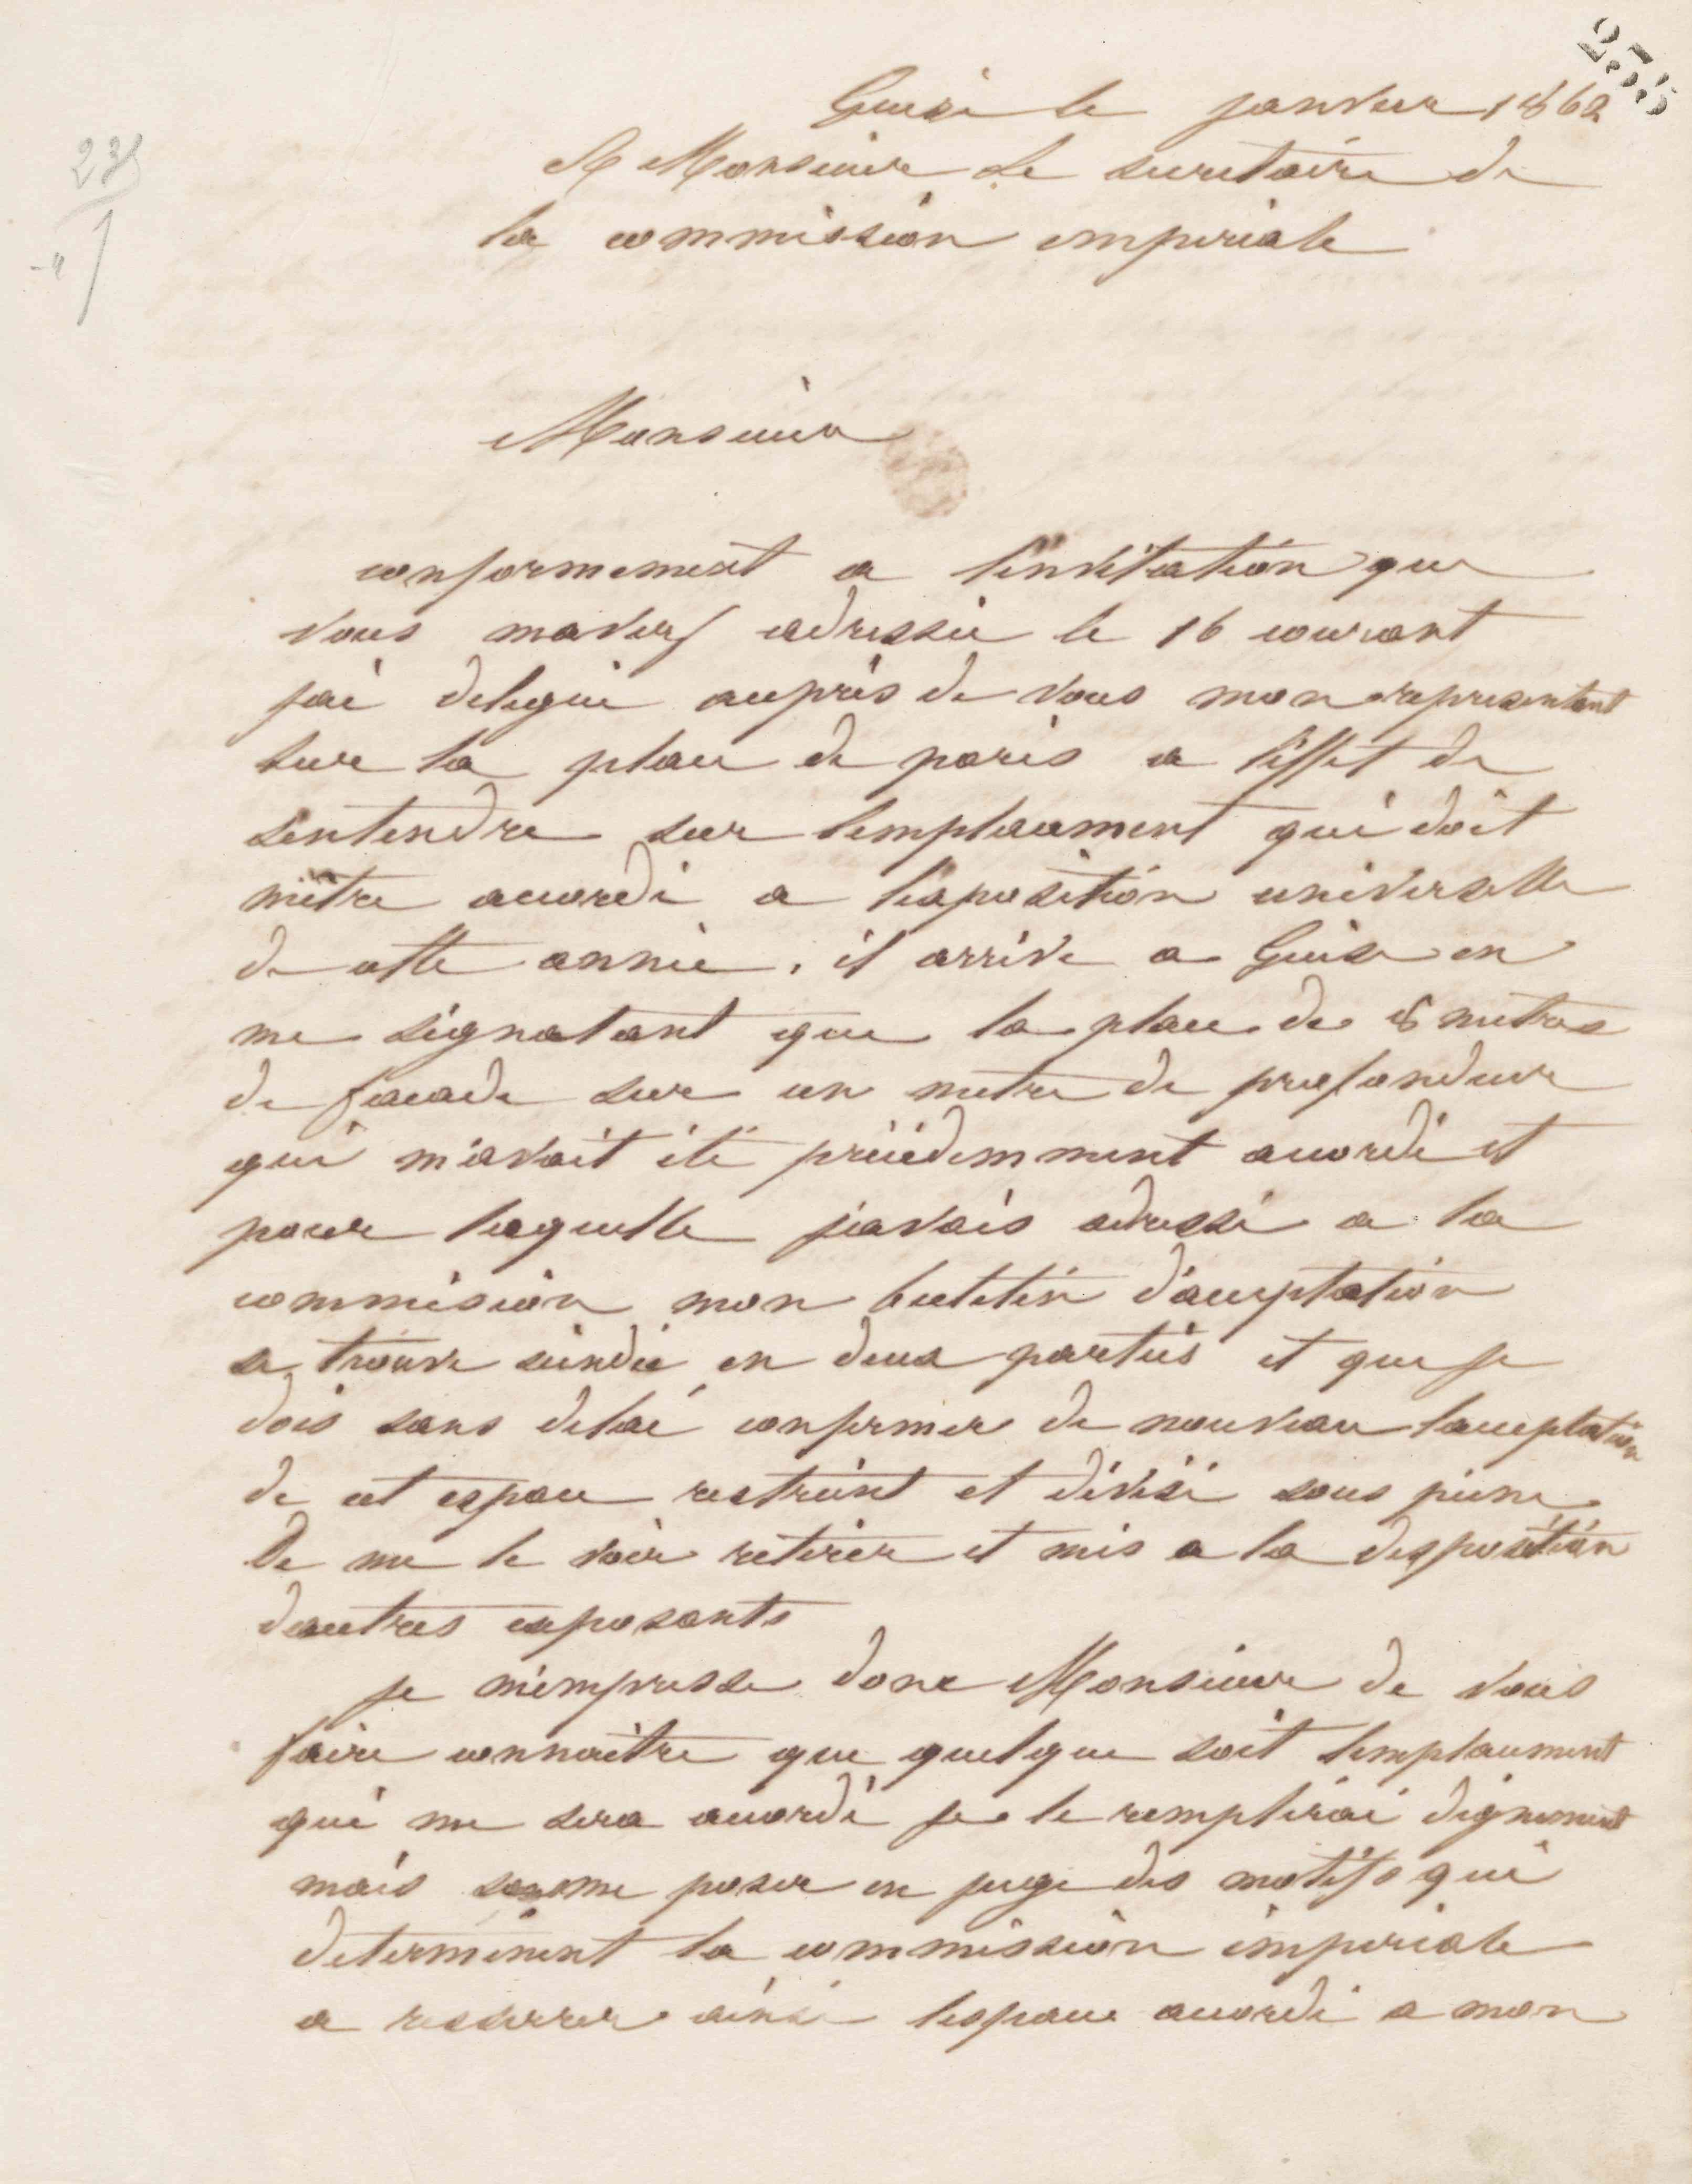 255
235
Guise le janvier 1862
A Monsieur Le secretaire de
la commission imperiale
Monsieur
conformement a l'invitation que
vous mavez adressée le 16 courant
jai delegué auprès de vous mon representant
sur la place de paris a l'effet de
sentendre sur lemplacement qui doit
mètre accordé a l'exposition universelle
de cette année, il arrive a Guise en
me signalant que la place de 8 mètres
de facade sur un metre de profondeur
qui m'avait été précédemment accordé et
pour laquelle j'avais adressé a la
commission mon bulletin d'acceptation
se trouve scindée en deux parties et que je
dois sans delai confirmer de nouveau lacceptation
de cet espace restreint et divisé sous peine
De me le voir retirer et mis a la disposition
dautres exposants
je m'empresse donc Monsieur de vous
faire connaitre que quelque soit lemplacement
qui me sera accordé je le remplirai dignement
mais sans me poser en juge des motifs qui
determinent la commission impériale
a resserrer ainsi lespace accordé a mon